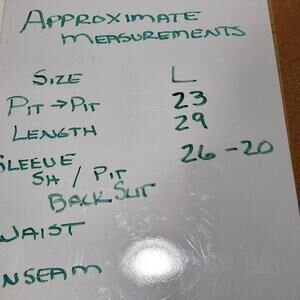 APPROXIMATE
MEASUREMENTS
SIZE L
PIT → PIT 23
LENGTH 29
SLEEVE 26 - 20
SH / PIT
BACK SLIT
WAIST
NSEAM